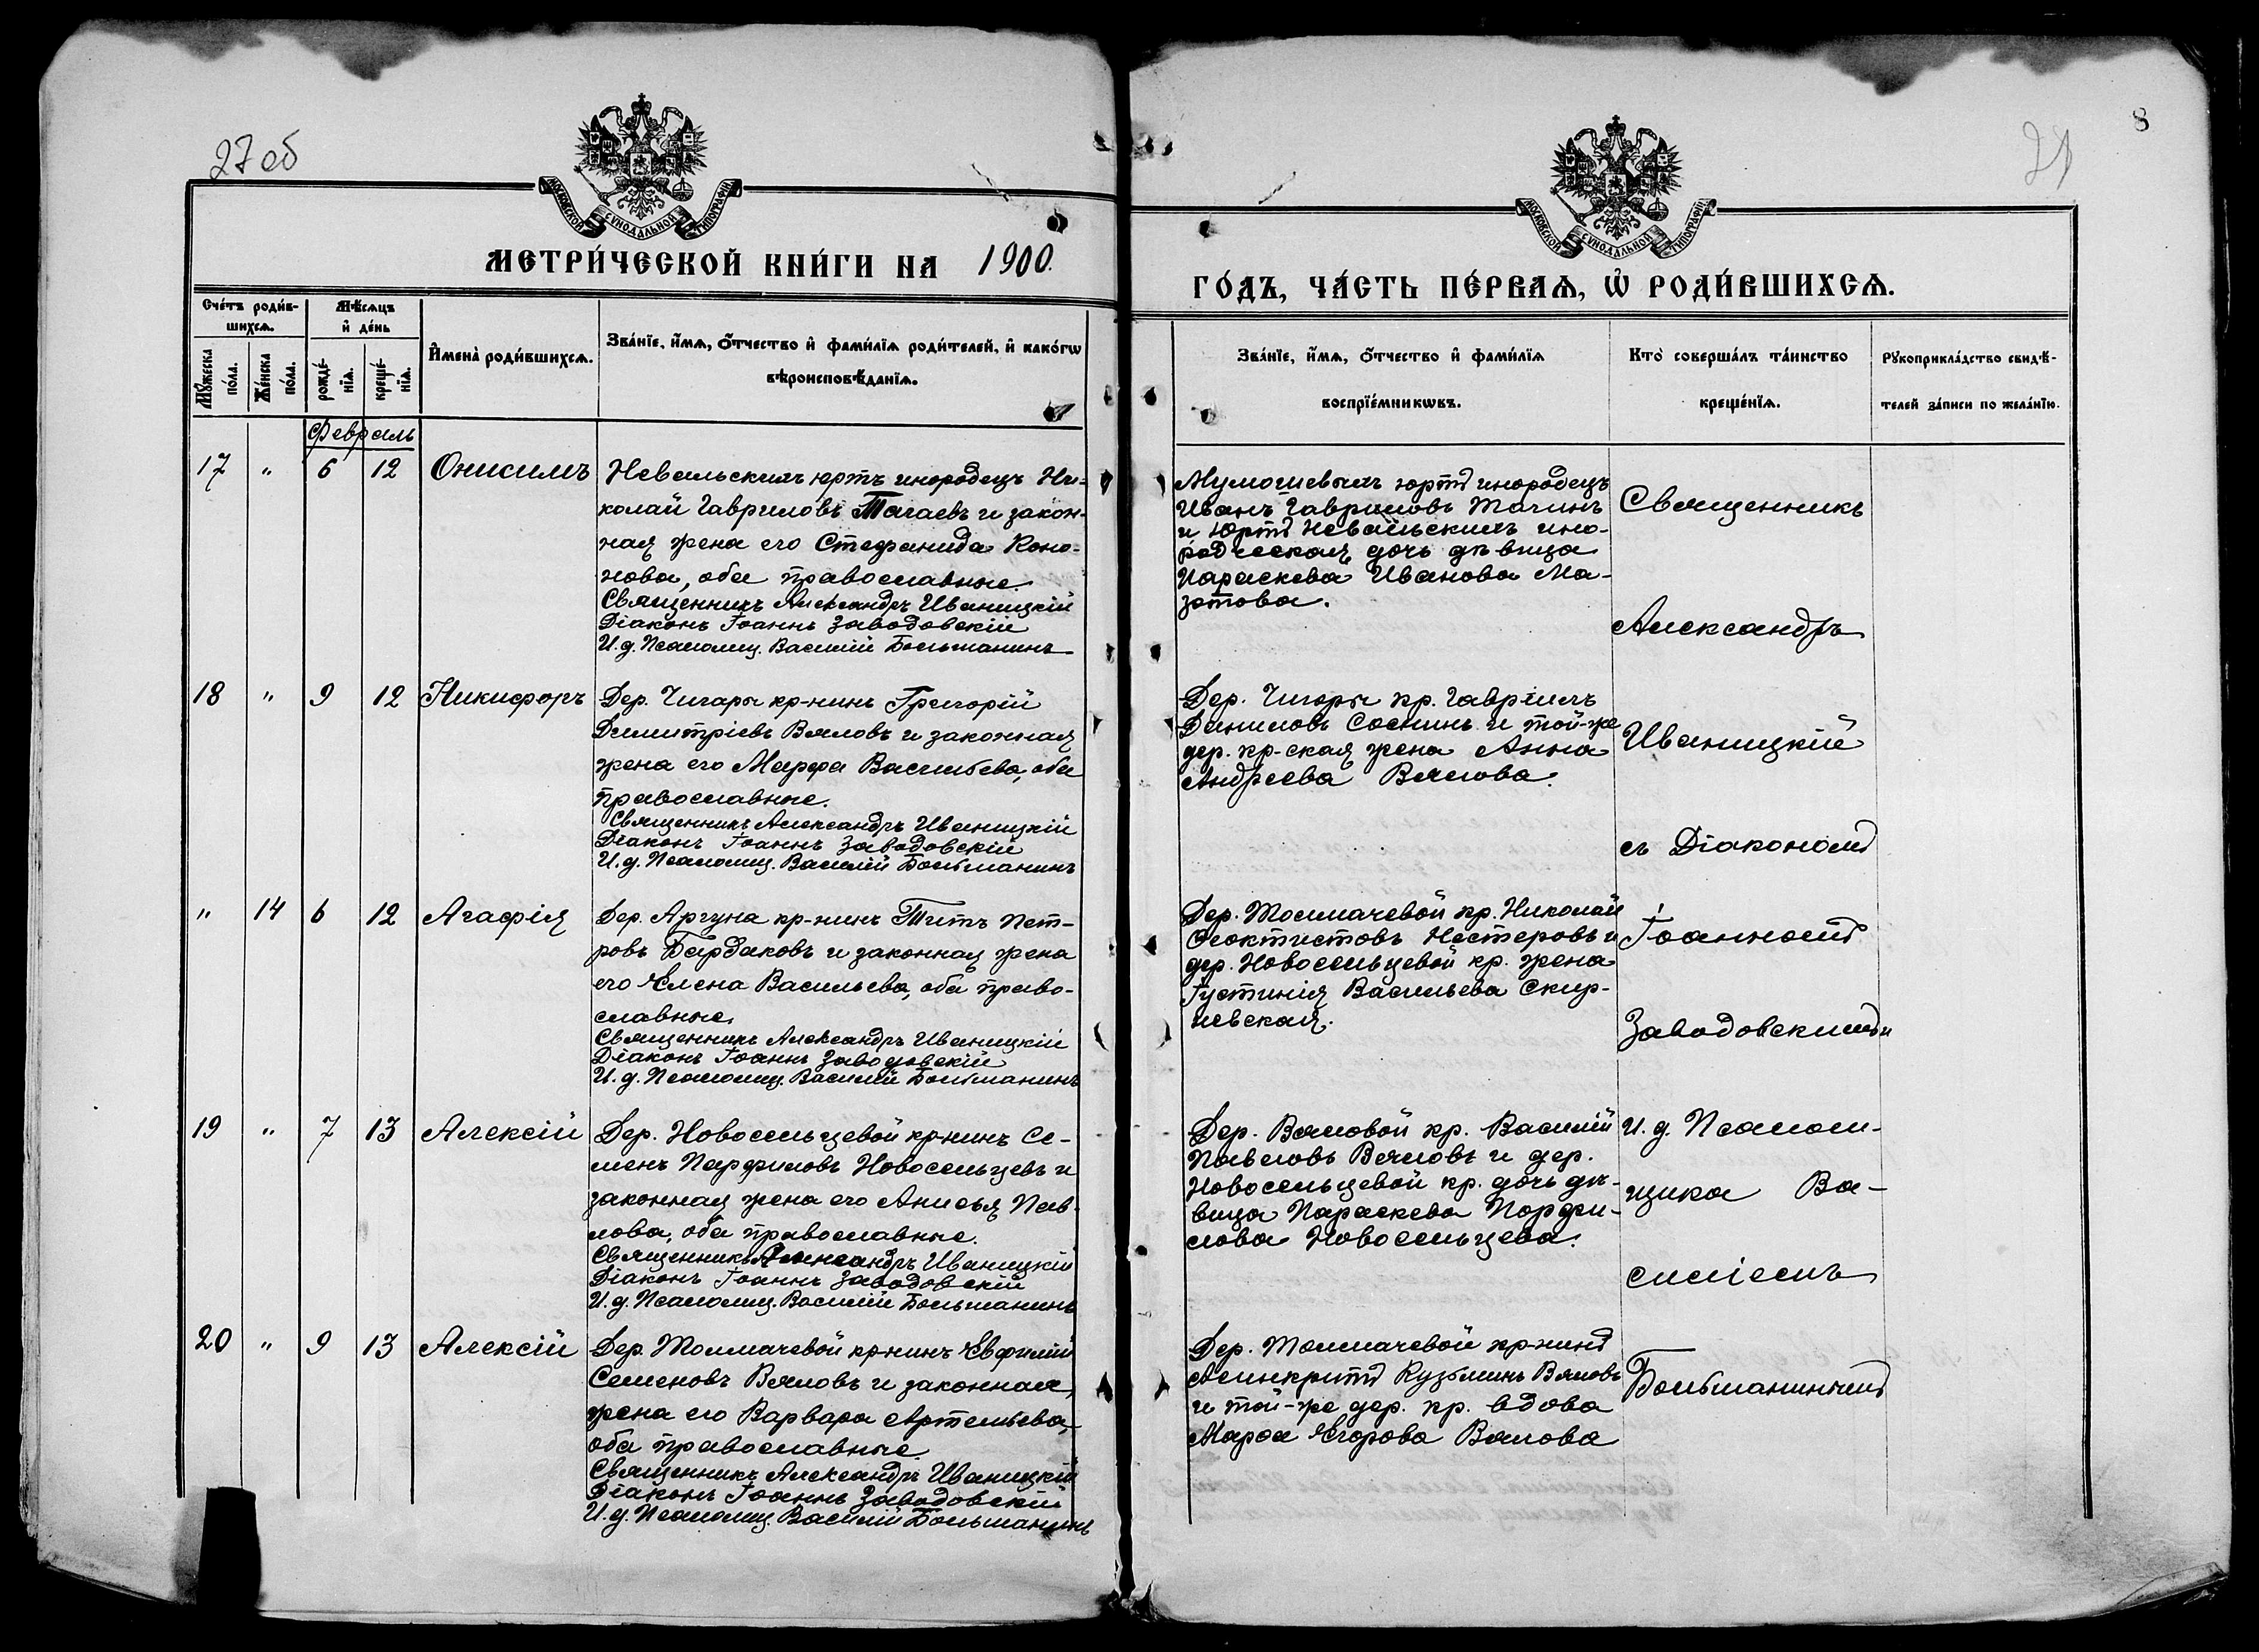 27 об
МОСКОВСКОЙ СѴНОДАЛЬНОЙ ТИПОГРАФІИ
МЕТРИ́ЧЕСКОЙ КНИ́ГИ НА 1900.
Сче́тъ роди́в-
шихсѧ.
Мѣ́сѧцъ
и҆ де́нь
И҆мена̀ роди́вшихсѧ.
Зва́нїе, и҆́мѧ, ѻ҆́тчество и҆ фами́лїѧ роди́телей, и҆ како́гѡ
вѣроисповѣ́данїѧ.
Мꙋ́жеска
по́ла.
Же́нска
по́ла.
рожде́-
нїѧ.
креще́-
нїѧ.
Февраль
17 " 6 12 Онисимъ
Невальскихъ юртъ инородецъ Ни-
колай Гавриловъ Тагаевъ и закон-
ная жена его Стефанида Коно-
нова, оба православные.
Священникъ Александръ Иваницкій
Діаконъ Іоаннъ Заводовскій
И. д. Псаломщ. Василій Большанинъ
18 " 9 12 Никифоръ
Дер. Чигары кр-нинъ Григорій
Димитріевъ Вяловъ и законная
жена его Марфа Васильева, оба
православные.
Священникъ Александръ Иваницкій
Діаконъ Іоаннъ Заводовскій
И. д. Псаломщ. Василій Большанинъ
" 14 6 12 Агафія
Дер. Аргуна кр-нинъ Титъ Пет-
ровъ Бардаковъ и законная жена
его Елена Васильева, оба право-
славные.
Священникъ Александръ Иваницкій
Діаконъ Іоаннъ Заводовскій
И. д. Псаломщ. Василій Большанинъ
19 " 7 13 Алексій
Дер. Новосельцевой кр-нинъ Се-
менъ Парфиловъ Новосельцевъ и
законная жена его Анисья Пав-
лова, оба православные.
Священникъ Александръ Иваницкій
Діаконъ Іоаннъ Заводовскій
И. д. Псаломщ. Василій Большанинъ
20 " 9 13 Алексій
Дер. Толмачевой кр-нинъ Евфимій
Семеновъ Вяловъ и законная
жена его Варвара Артемьева,
оба православные
Священникъ Александръ Иваницкій
Діаконъ Іоаннъ Заводовскій
И. д. Псаломщ. Василій Большанинъ
8
МОСКОВСКОЙ СѴНОДАЛЬНОЙ ТИПОГРАФІИ
ГО́ДЪ, ЧА́СТЬ ПЕ́РВАѦ, Ѡ҆ РОДИ́ВШИХСѦ.
Зва́нїе, и҆́мѧ, ѻ҆́тчество и҆ фами́лїѧ
воспрїе́мникѡвъ.
Кто̀ соверша́лъ та́инство
креще́нїѧ.
Рꙋкоприкла́дство свидѣ́-
телей за́писи по жела́нїю.
Мумошевыхъ юртъ инородецъ
Иванъ Гавриловъ Тачинъ
и юртъ Невальскихъ ино-
родческая дочь дѣвица
Параскева Иванова Ма-
зотова.
Дер. Чигары кр. Гавріилъ
Даниловъ Соснинъ и той-же
дер. кр-ская жена Анна
Андреева Вялова.
Дер. Толмачевой кр. Николай
Ѳеоктистовъ Нестеровъ и
дер. Новосельцевой кр. жена
Іустинія Васильева Скир-
невская.
Дер. Вяловой кр. Василій
Павеловъ Вяловъ и дер.
Новосельцевой кр. дочь дѣ-
вица Параскева Порфи-
лова Новосельцева.
Дер. Толмачевой кр-нинъ
Асинкритъ Кузьминъ Вяловъ
и той-же дер. кр. вдова
Марѳа Егорова Вялова
Священникъ
Александръ
Иваницкій
съ Діакономъ
Іоанномъ
Заводовскимъ и
И. д. Псалом-
щика Ва-
силіемъ
Большанинымъ